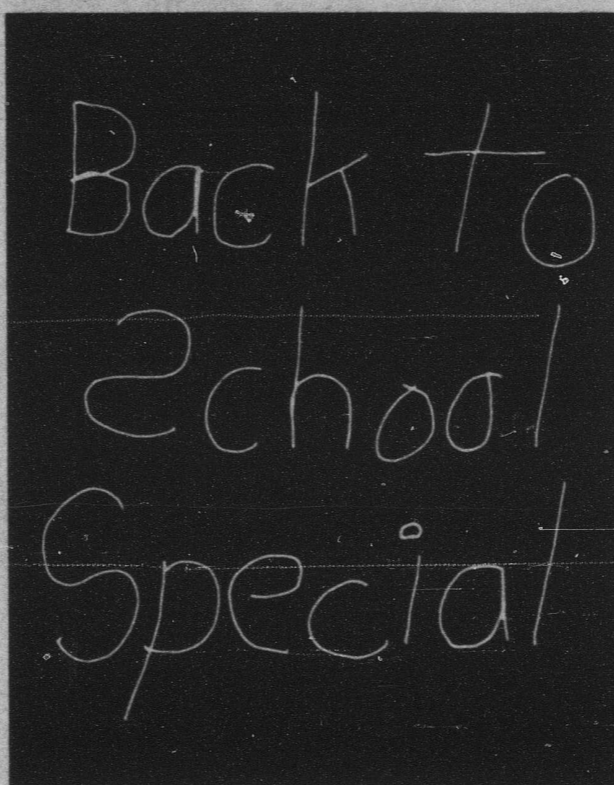 Back to
School
Special